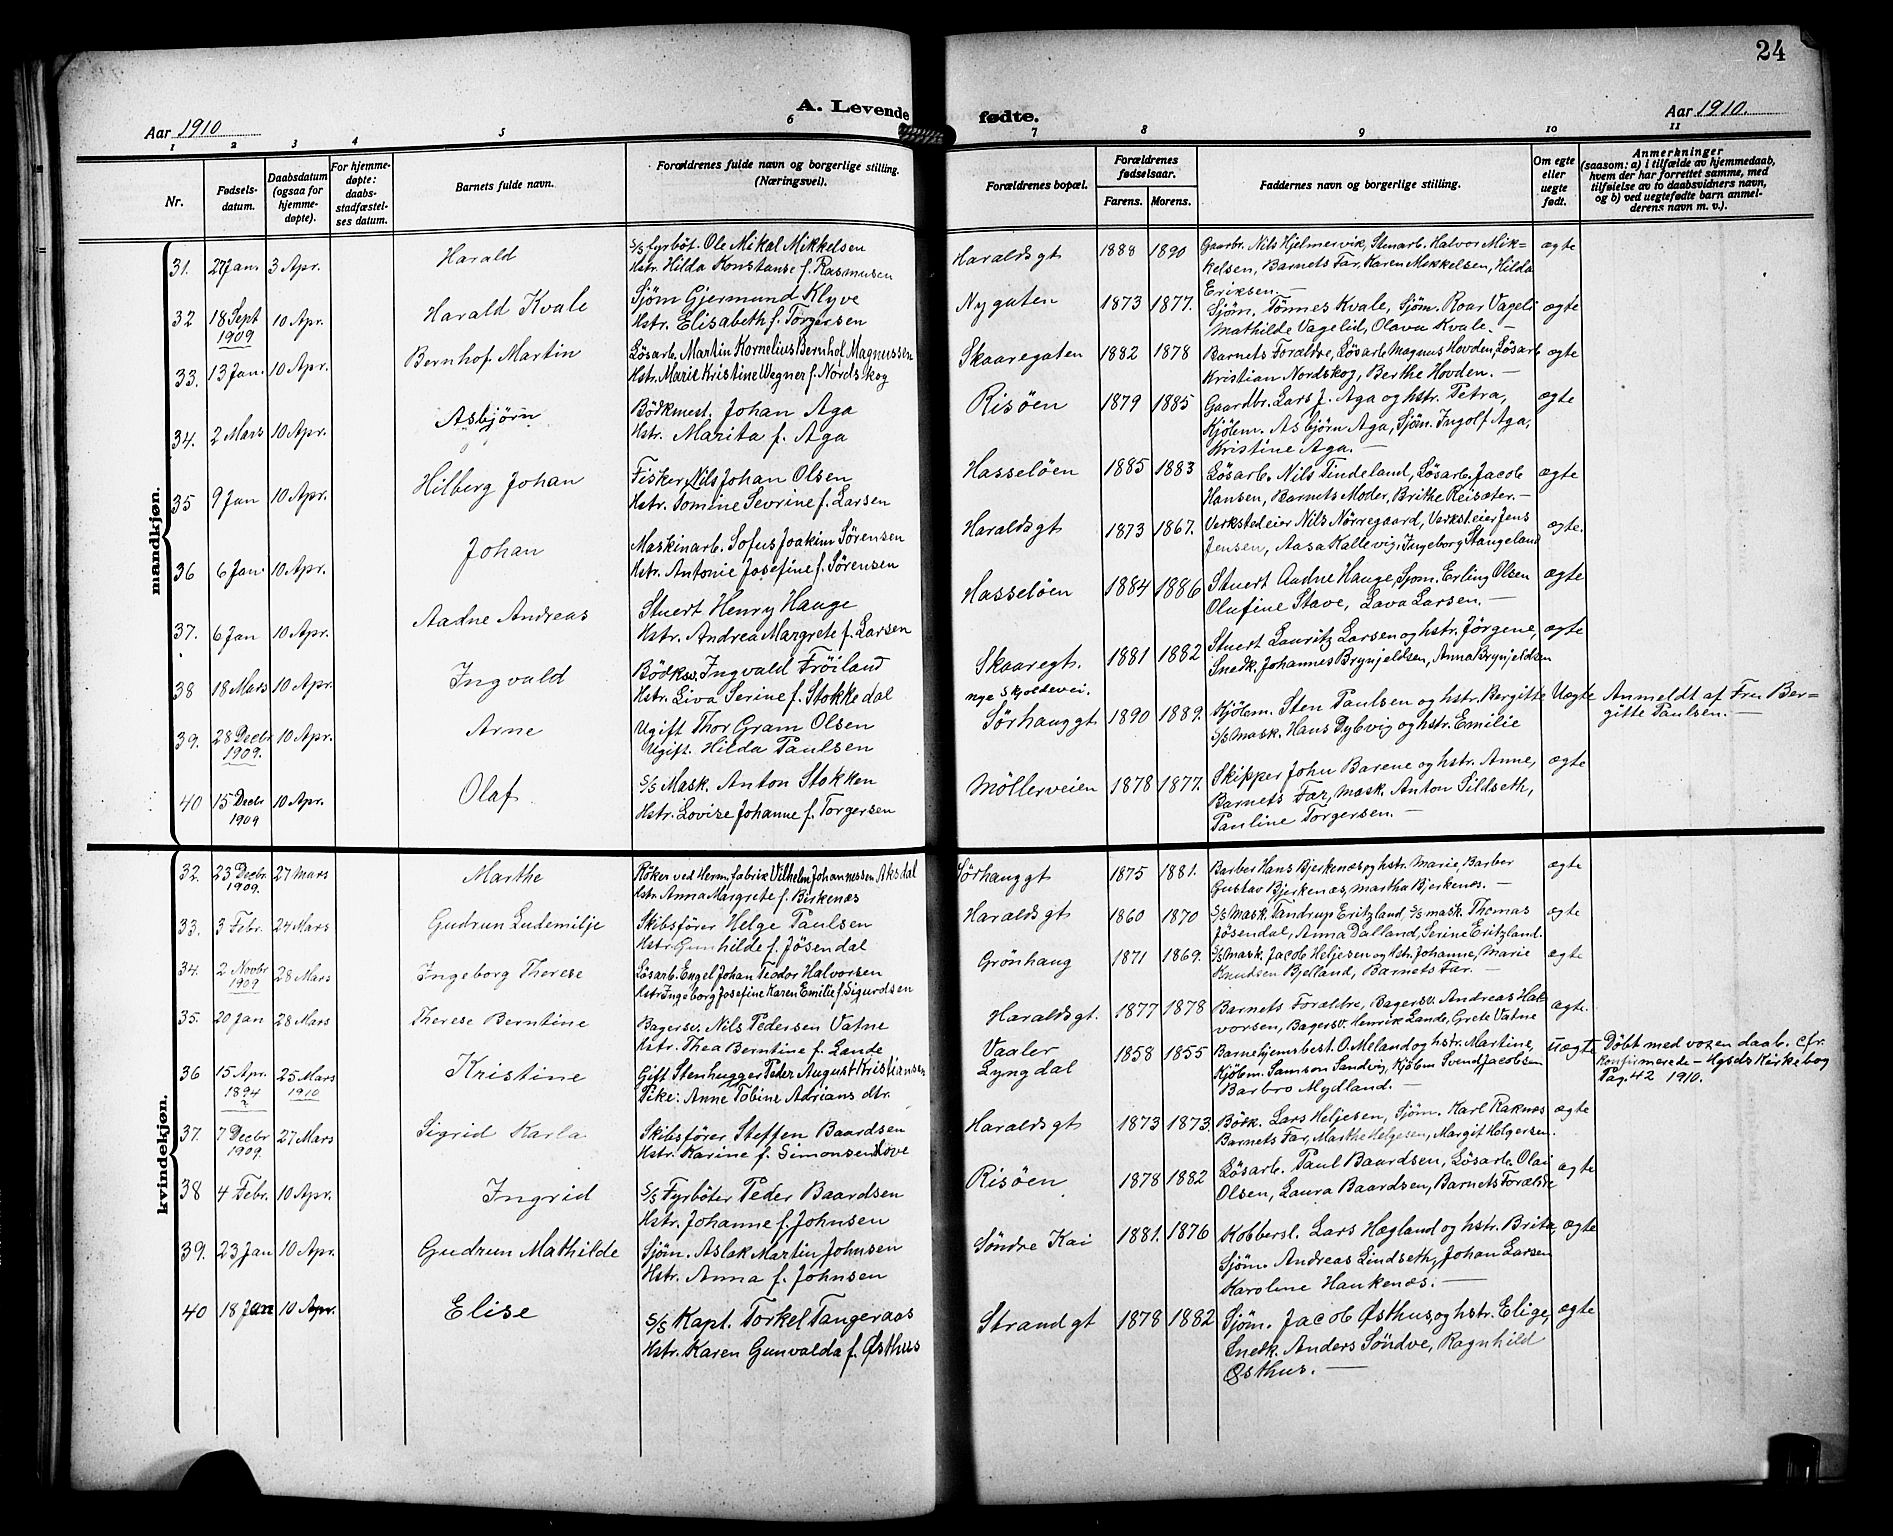 24
A. Levende fødte.
Aar 1910
Aar 1910.
1 2 3 4 5 6 7 8 9 10 11
Nr.
Fødsels-
datum.
Daabsdatum
(ogsaa for
hjemme-
døpte).
For hjemme-
døpte:
daabs-
stadfæstel-
ses datum.
Barnets fulde navn.
Forældrenes fulde navn og borgerlige stilling.
(Næringsvei).
Forældrenes bopæl.
Forældrenes
fødselsaar.
Farens. Morens.
Faddernes navn og borgerlige stilling.
Om egte
eller
uegte
født.
Anmerkninger
(saasom: a) i tilfælde av hjemmedaab,
hvem der har forrettet samme, med
tilføielse av to daabsvidners navn,
og b) ved uegtefødte barn anmel-
derens navn m. v.).
mandkjøn.
31. 27 Jan 3 Apr. Harald
S/S fyrböt. Ole Mikal Mikkelsen
Hstr. Hilda Konstanse f. Rasmusen
Haraldsgt 1888 1890
Gaarbr. Nils Hjelmervik, Stenarb. Halvor Mik-
kelsen, Barnets Far, Karen Mekkelsen, Hilda
Eriksen.—
ægte
32 18 Sept 1909 10 Apr. Harald Kvale
Sjöm Gjermund Klyve
Hstr. Elisabeth f. Torgersen
Nygaten 1873 1877.
Sjöm. Tönnes Kvale, Sjöm. Roar Vageli
Mathilde Vagelid, Olava Kvale.—
ægte
33. 13 Jan. 10 Apr. Bernhof Martin
Lösarb. Martin Kornelius Bernhof Magnussen
Hstr. Marie Kristine Wegner f. Nordskog
Skaaregaten 1882 1878
Barnets Forældre, Lösarb Magnus Hovden, Lösarb
Kristian Nordskog, Berthe Hovden.—
ægte
34. 2 Mars 10 Apr. Asbjörn
Bödkmest. Johan Aga
Hstr. Marita f. Aga
Risöen 1879 1885
Gaardbr. Lars J. Aga og hstr. Petra,
Kjölem. Asbjörn Aga, Sjöm. Ingolf Aga,
Kristine Aga.—
ægte
35 9 Jan 10 Apr. Hilberg Johan
Fisker Nils Johan Olsen
Hstr. Tomine Sevrine f. Larsen
Hasselöen 1885 1883
Lösarb. Nils Tindeland, Lösarb. Jacob
Hansen, Barnets Moder, Brithe Reisæter.—
ægte
36 6 Jan 10 Apr. Johan
Maskinarb. Sofus Joakim Sörensen
Hstr. Antonie Josefine f. Sörensen
Haraldsgt 1873 1867.
Verkstedeier Nils Nörregaard, Verksteier Jens
Jensen, Aasa Kallevig, Ingeborg Stangeland
ægte.
37. 6 Jan 10 Apr. Aadne Andreas
Stuert Henry Hauge
Hstr. Andrea Margrete f. Larsen
Hasselöen 1884 1886
Stuert Aadne Hauge, Sjöm. Erling Olsen
Olufine Stave, Lava Larsen.—
ægte
38 18 Mars 10 Apr. Ingvald
Bödksv. Ingvald Fröiland
Hstr. Liva Serine f. Stokkedal
Skaaregt. 1881 1882
nye Skjoldevei.
Stuert Lauritz Larsen og hstr. Jörgene,
Snedk. Johannes Brynjeldsen, Anna Brynjeldsen
ægte
39. 28 Decbr 1909. 10 Apr. Arne
Ugift Thor Gram Olsen
Ugift. Hilda Paulsen
Sörhauggt 1890 1889.
Kjölem. Sten Paulsen og hstr. Bergitte
S/S Mask. Hans Dybvig og hstr. Emilie
Uægte
Anmeldt af Fru Ber-
gitte Paulsen.—
40 15 Decbr 1909 10 Apr. Olaf
S/S Mask. Anton Stokken
Hstr. Lovise Johanne f. Torgersen
Möllerveien 1878 1877.
Skipper John Barene og hstr. Anne,
Barnets Far, Mask. Anton Sildseth,
Pauline Torgersen.—
ægte
kvindekjøn.
32. 23 Decbr 1909. 27 Mars Marthe
Röker ved Herm. fabrik Vilhelm Johannessen Aksdal
Hstr. Anna Margrete f. Birkenæs
Sörhauggt 1875 1881.
Barber Hans Bjerkenæs og hstr. Marie, Barber
Gustav Bjerkenæs, Martha Bjerkenæs.—
ægte
33. 3 Febr. 24 Mars Gudrun Ludemilje
Skibsförer Helge Paulsen
Hstr Gunhilde f. Jösendal
Haraldsgt 1860 1870
S/S Mask. Tandrup Eritzland, S/S mask. Thomas
Jösendal, Anna Dalland, Serine Eritzland.
ægte
34. 2 Novbr 1909 28 Mars Ingeborg Therese
Lösarb. Engel Johan Teodor Halvorsen
Hstr Ingeborg Josefine Karen Emilie f. Sigurdsen
Grönhaug 1871 1869.
S/S Mask. Jacob Heljesen og Hstr. Johanne, Marie
Knudsen Bjelland, Barnets Far.—
ægte
35. 20 Jan 28 Mars Therese Berntine
Bagersv. Nils Pedersen Vatne
Hstr. Thea Berntine f. Lande
Haraldsgt. 1877 1878
Barnets Forældre, Bagersv. Andreas Hal-
vorsen, Bagersv. Henrik Lande, Grete Vatne
ægte.
36 15 Apr. 1894 25 Mars 1910 Kristine
Gift Stenhugger Peder August Kristiansen
Pike: Anne Tobine Adrians dtr.
Vaaler
Lyngdal 1858 1855
Barnehjemsbest. O. Meland og hstr. Martine,
Kjölem. Samson Sandvig, Kjölem Svend Jacobsen
Barbro Mydland.—
uægte
Döbt med voxen daab. cfr.
Konfirmerede - Kirkebog
Pag. 42 1910.
37. 7 Decbr 1909. 27 Mars Sigrid Karla
Skibsförer Steffen Baardsen
Hstr. Karine f. Simonsen Hove
Haraldsgt 1873 1873
Börk. Lars Heljesen, Sjöm. Karl Raknæs
Barnets Far, Marthe Helgesen, Margit Holgersen.
ægte
38 4 Febr. 10 Apr. Ingrid
S/S Fyrböter Peder Baardsen
Hstr. Johanne f. Johnsen
Risöen 1878 1882
Lösarb. Paul Baardsen, Lösarb. Olai
Olsen, Laura Baardsen, Barnets Forældre
ægte
39. 23 Jan 10 Apr. Gudrun Mathilde
Sjöm. Aslak Martin Johnsen
Hstr. Anna f. Johnsen
Söndre Kai 1881. 1876
Kobbersl. Lars Hægland og hstr. Brita,
Sjöm. Andreas Lindseth, Johan Larsen
Karolene Haukenæs.—
ægte
40 18 Jan 10 Apr. Elise
S/S Kapt. Torkel Tangeraas
Hstr. Karen Gunvalda f. Østhus
Strandgt 1878 1882
Sjöm. Jacob Østhus, og hstr. Elige,
Snedk. Anders Söndve, Ragnhild
Østhus.—
ægte